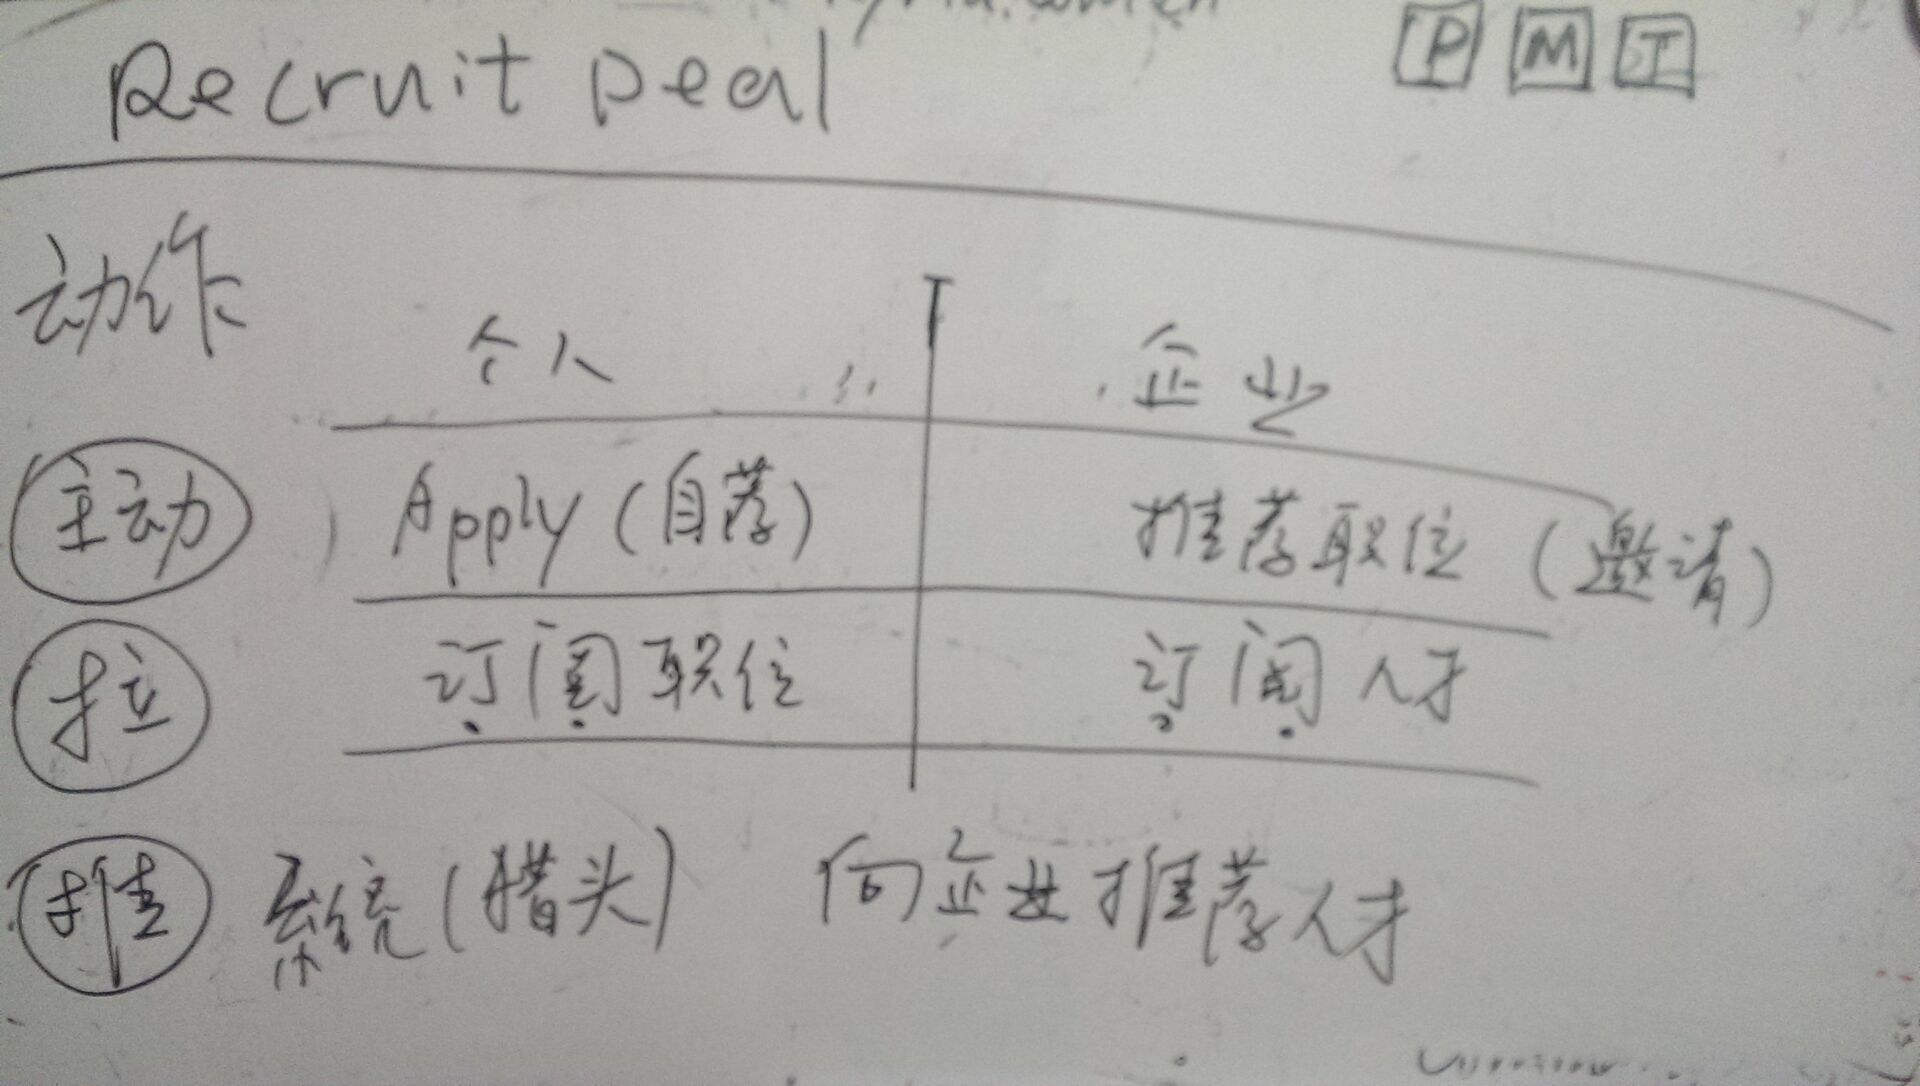 Recruit Deal
P M T
动作
个人 企业
主动 Apply (自荐) 推荐职位 (邀请)
拉 订阅职位 订阅人才
推 系统 (猎头) 向企业推荐人才